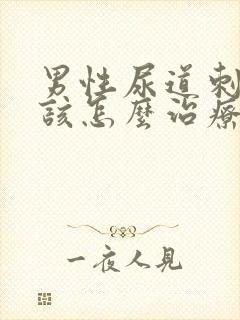 男性尿道刺
該怎麼治療
一夜人見